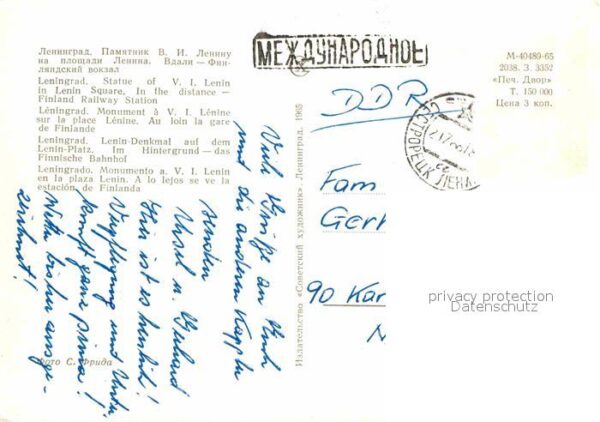 Ленинград. Памятник В. И. Ленину
на площади Ленина. Вдали — Фин-
ляндский вокзал
Leningrad. Statue of V. I. Lenin
in Lenin Square. In the distance —
Finland Railway Station
Léningrad. Monument à V. I. Lénine
sur la place Lénine. Au loin la gare
de Finlande
Leningrad. Lenin-Denkmal auf dem
Lenin-Platz. Im Hintergrund — das
Finnische Bahnhof
Leningrado. Monumento a V. I. Lenin
en la plaza Lenin. A lo lejos se ve la
estación de Finlandia
Фото С. Фрида
МЕЖДУНАРОДНОЕ
М-40489-65
2038. З. 3352
«Печ. Двор»
Т. 150 000
Цена 3 коп.
СЕСТРОРЕЦК ЛЕНА
Издательство «Советский художник». Ленинград. 1965
Viele Grüße an Euch
und die anderen
senden
Ursel u. Gerhard
Hier ist es herrlich!
Verpflegung und Unter-
kunft ganz prima!
Wetter bisher ausge-
zeichnet!
DDR
Fam
Gerh
90 Kar
privacy protection
Datenschutz